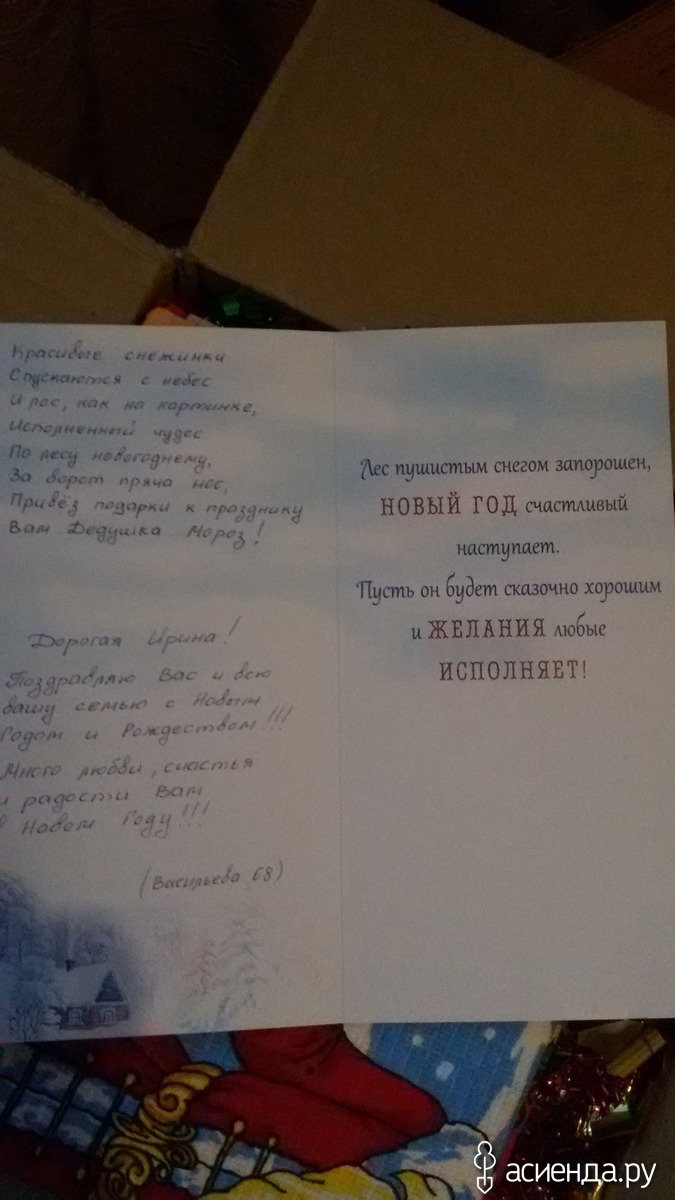 Красивые снежинки
Спускаются с небес
И лес, как на картинке,
Исполненный чудес.
По лесу новогоднему,
За ворот пряча нос,
Привёз подарки к празднику
Вам Дедушка Мороз!
Дорогая Ирина!
Поздравляю Вас и всю
вашу семью с Новым
Годом и Рождеством!!!
Много любви, счастья
и радости Вам
в Новом Году!!!
(Васильева 68)
Лес пушистым снегом запорошен,
НОВЫЙ ГОД счастливый
наступает.
Пусть он будет сказочно хорошим
и ЖЕЛАНИЯ любые
ИСПОЛНЯЕТ!
асиенда.ру